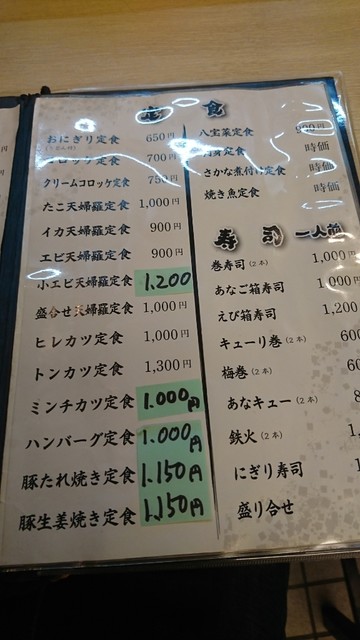 定食
おにぎり定食 650円
コロッケ定食 700円
クリームコロッケ定食 750円
たこ天婦羅定食 1,000円
イカ天婦羅定食 900円
エビ天婦羅定食 900円
小エビ天婦羅定食 1,200
盛合せ天婦羅定食 1,000円
ヒレカツ定食 1,000円
トンカツ定食 1,300円
ミンチカツ定食 1.000円
ハンバーグ定食 1.000円
豚たれ焼き定食 1.150円
豚生姜焼き定食 1.150円
八宝菜定食 900円
定食 時価
さかな煮付け定食 時価
焼き魚定食 時価
寿司 一人前
巻寿司(2本) 1,000円
あなご箱寿司 1,090円
えび箱寿司 1,200
キューり巻(2本) 600
梅巻(2本)
あなキュー(2本)
鉄火(2本)
にぎり寿司
盛り合せ